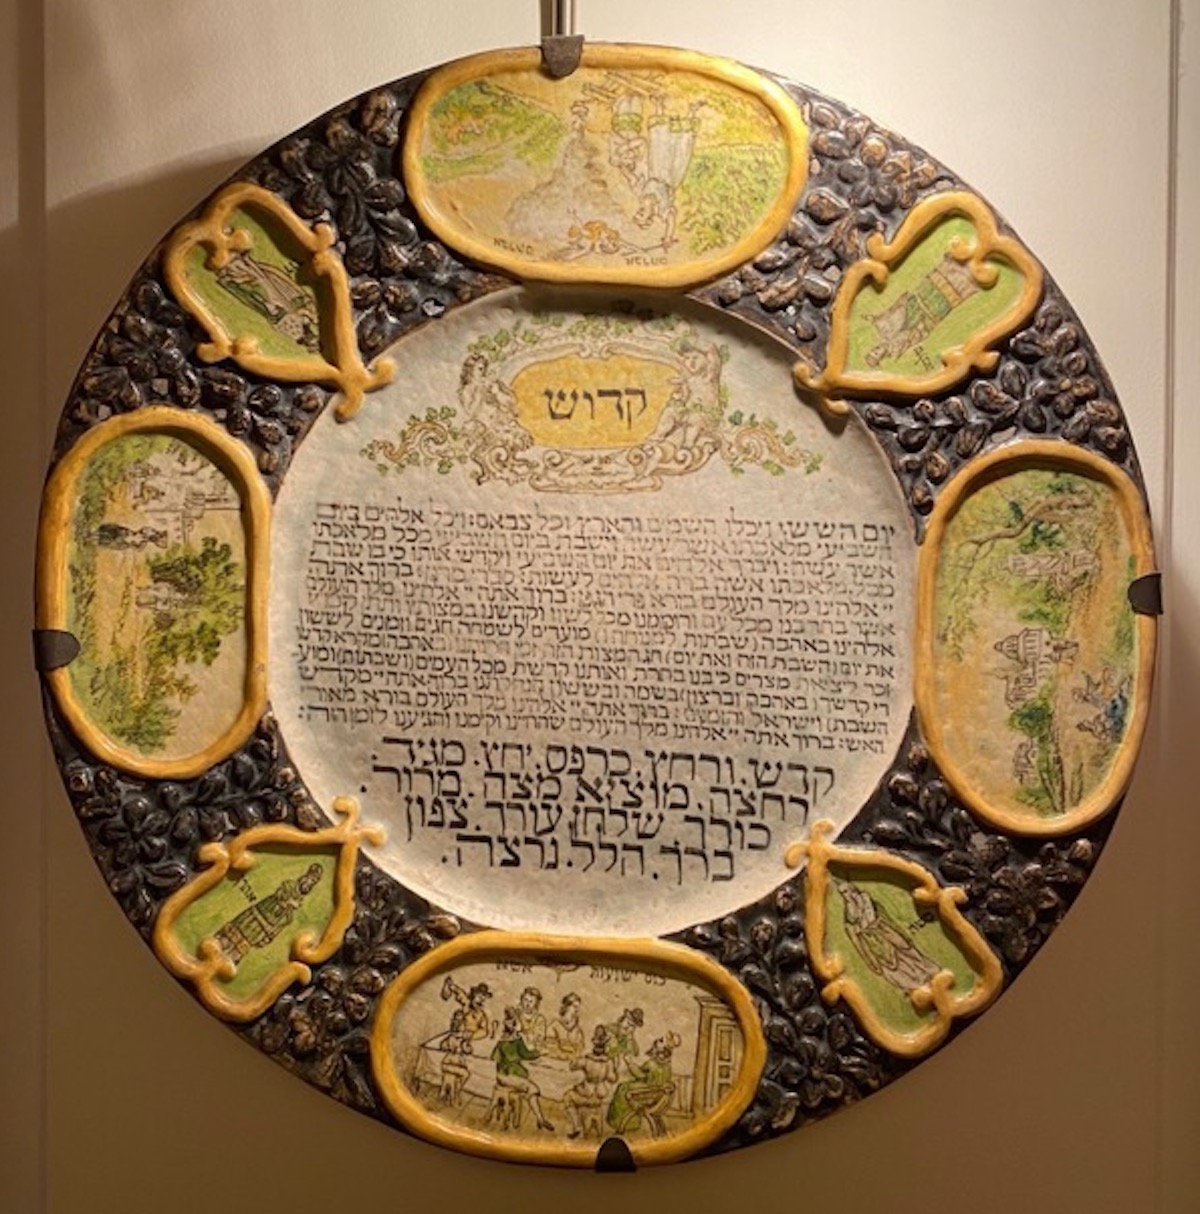 קדוש
יום הששי: ויכלו השמים והארץ וכל צבאם: ויכל אלהים ביום
השביעי מלאכתו אשר עשה וישבת ביום השביעי מכל מלאכתו
אשר עשה: ויברך אלהים את יום השביעי ויקדש אותו כי בו שבת
מכל מלאכתו אשר ברא אלהים לעשות: סברי מרנן: ברוך אתה
יי אלהינו מלך העולם בורא פרי הגפן: ברוך אתה יי אלהינו מלך העולם
אשר בחר בנו מכל עם ורוממנו מכל לשון וקדשנו במצותיו ותתן לנו יי
אלהינו באהבה (שבתות למנוחה ו) מועדים לשמחה חגים וזמנים לששון
את יום (השבת הזה ואת יום) חג המצות הזה זמן חרותנו באהבה מקרא קדש
זכר ליציאת מצרים כי בנו בחרת ואותנו קדשת מכל העמים (ושבתות) ומוע
די קדשך (באהבה וברצון) בשמחה ובששון הנחלתנו ברוך אתה יי מקדש
השבת) וישראל והזמנים: ברוך אתה יי אלהינו מלך העולם בורא מאורי
האש: ברוך אתה יי אלהינו מלך העולם שהחינו וקימנו והגיענו לזמן הזה:
קדש. ורחץ. כרפס. יחץ. מגיד.
רחצה. מוציא מצה. מרור.
כורך. שלחן עורך. צפון
ברך. הלל. נרצה.
אהרן
כוס ישועות אשא